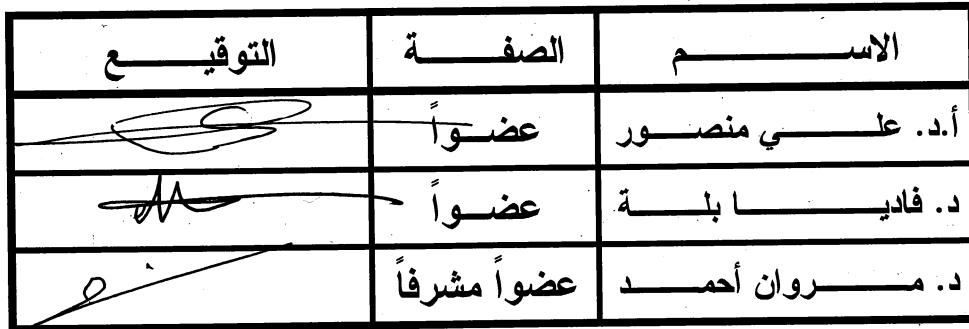 الاسم الصفة التوقيع
أ.د. علي منصور عضواً
د. فاديا بلة عضواً
د. مروان أحمد عضواً مشرفاً